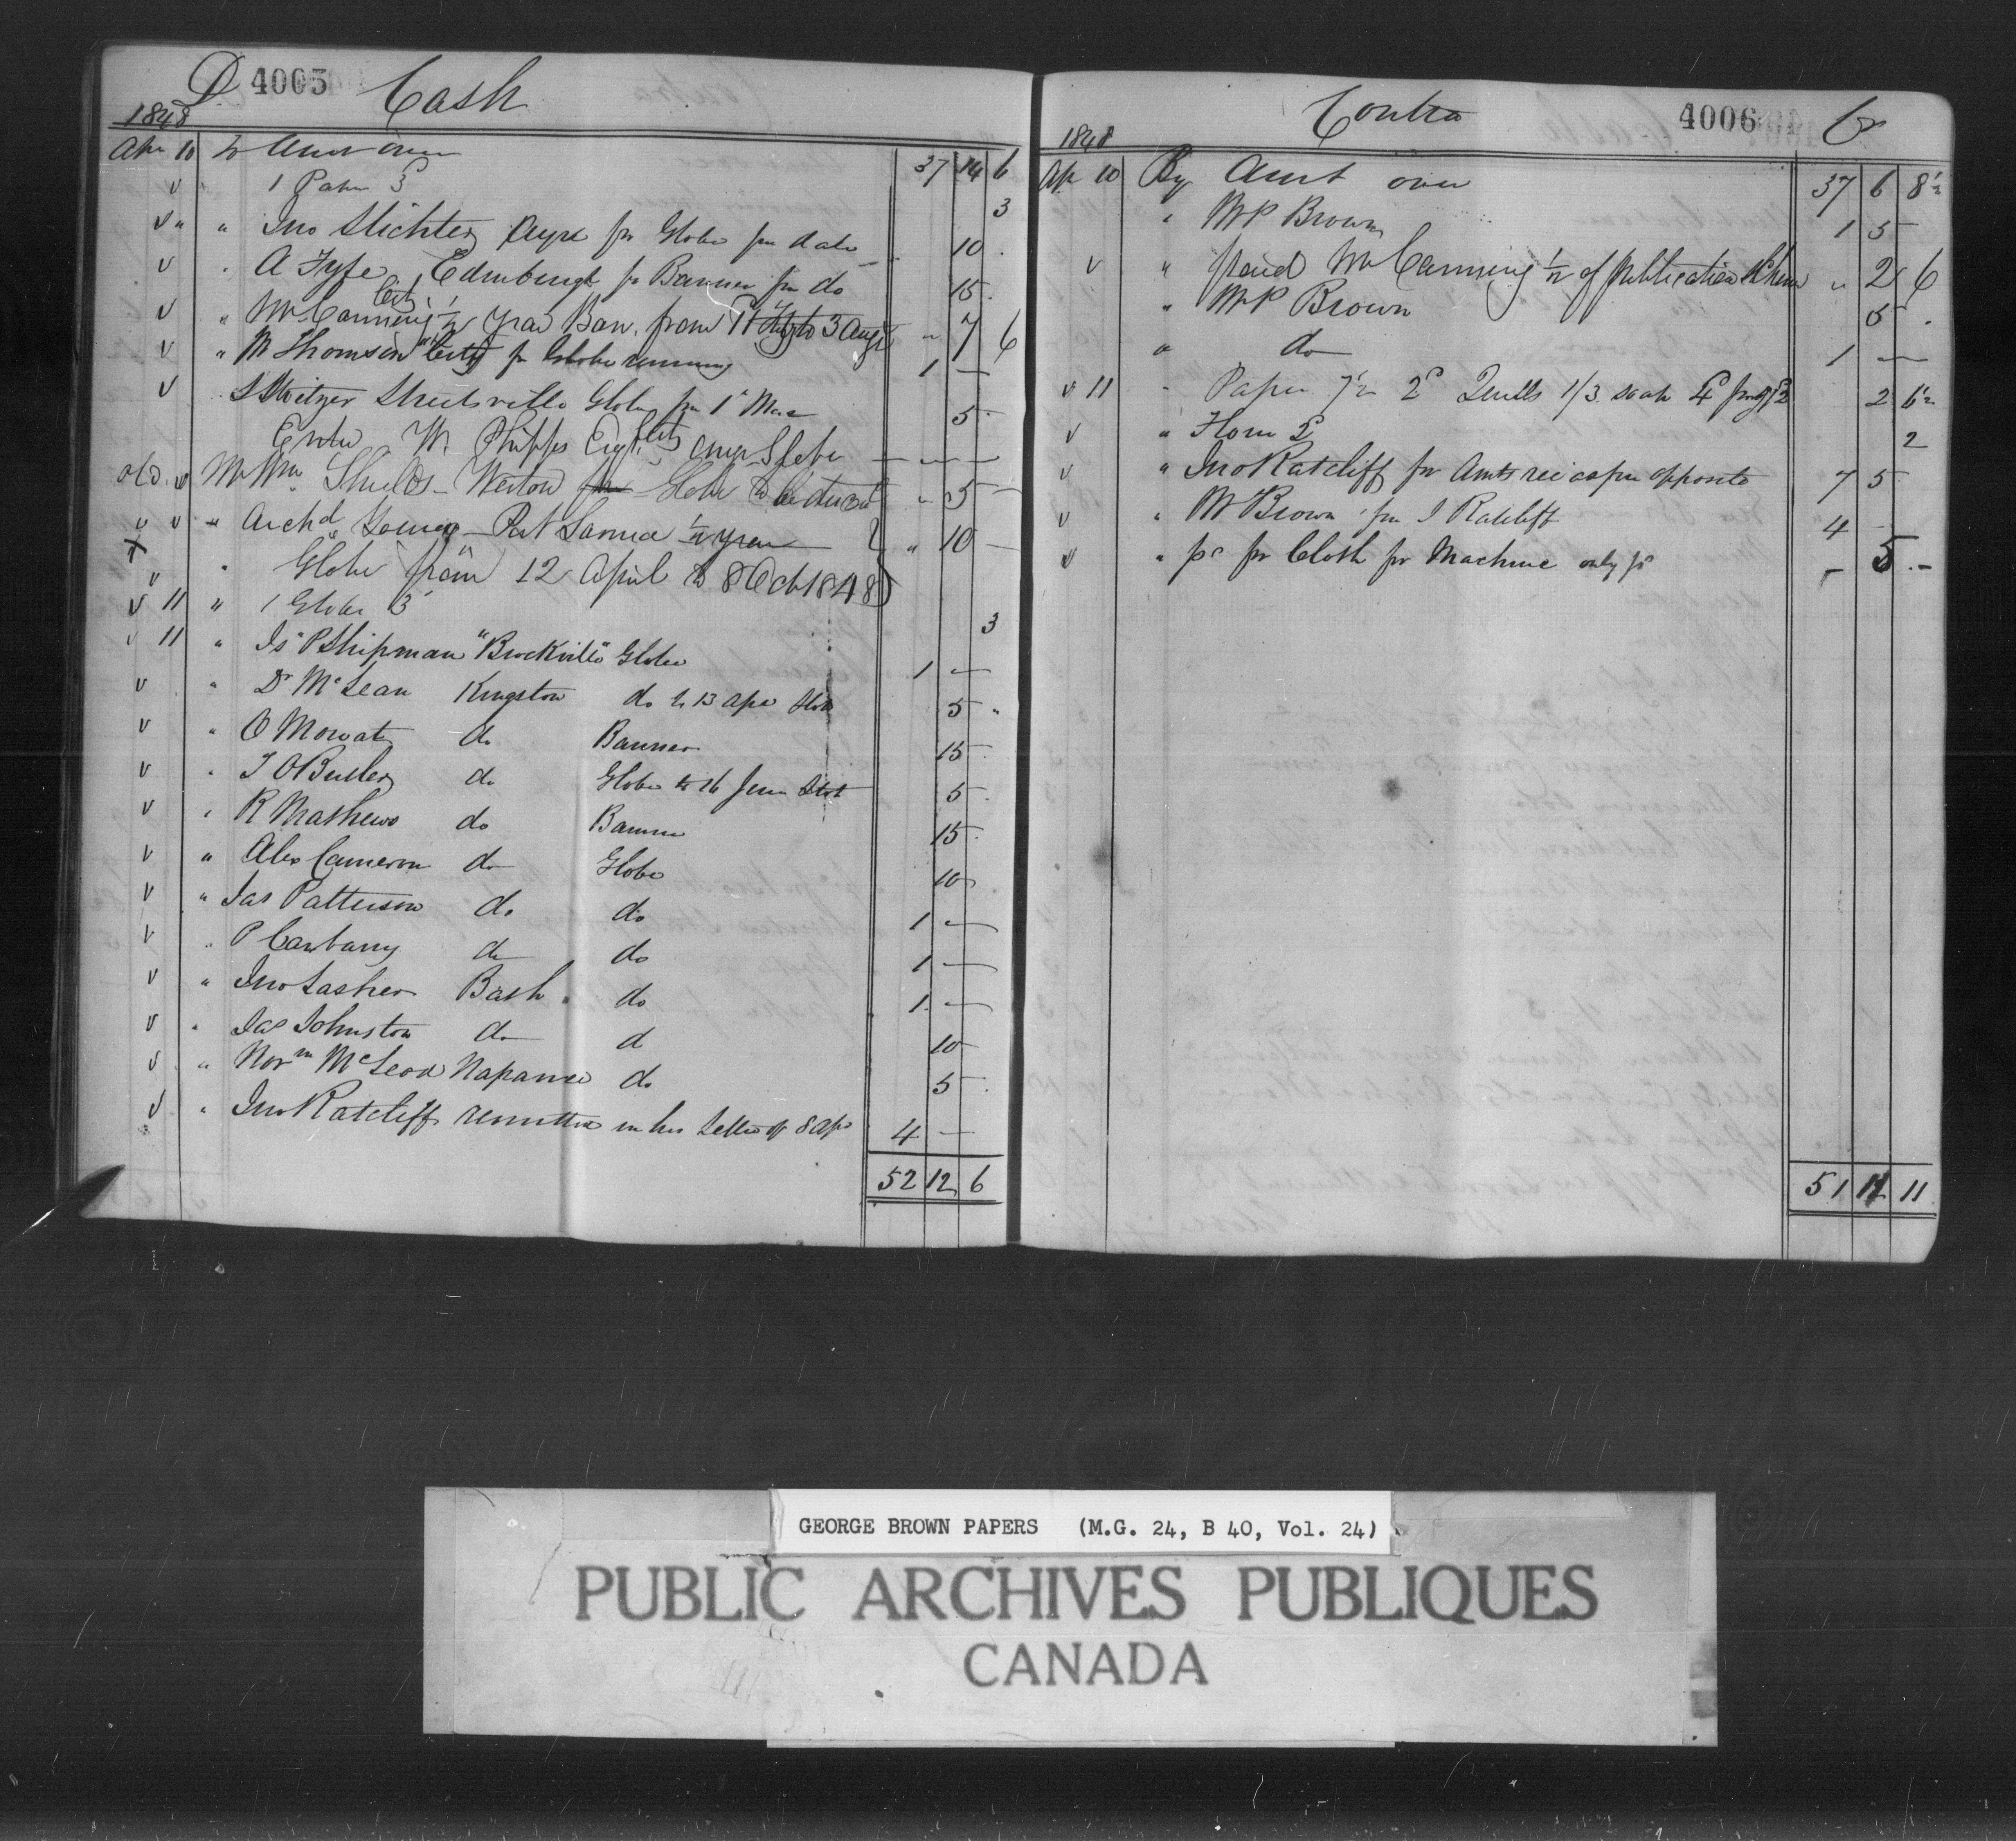 Dr 4005 Cash
1848
Apr 10 To Amt over 37 14 6
v " 1 Paper 3d 3
v " " Jno Slichter Ayre for Globe per date 10
v " A Fyfe Edinburgh for Banner per do 15
v " Mr Canning City 1/2 year Ban. from to 3 Augt " 7 6
v " M Thomson "City" for Globe running 1 —
v Switzer Streetsville Globe per 1st Mar 5
Enter W. Phipps Esqr City Globe — — —
old v Mr Wm Shields - Weston for Globe to " 5 —
v v " Archd Young - Port Sarnia 1/2 year " 10 —
x v " Globe from 12 April to 8 Oct 1848
v 11 " 1 Globe 3d 3
v 11 " Js P Shipman "Brockville" Globe 1 —
v " Dr McLean Kingston do to 13 Apr 5 "
v " O Mowat do Banner 15
v " T O Butler do Globe to 16 June 5
v " R Mathews do Banner 15
v " Alex Cameron do Globe 10
v " Jas Patterson do do 1 —
v " P Conbany do do 1 —
v " Jno Lasher Bath do 1 —
v " Jas Johnston do do 10
v " Norm McLeod Napanee do 5
v " Jno Ratcliff remittce in his Letter of 8 Apr 4 —
52 12 6
Contra 4006 Cr
1848
Ap 10 By Amt over 37 6 8 1/2
" Mr P Brown 1 5
v " paid Mr Canning 1/2 of publication " 2 6
" Mr P Brown 5
" do 1 —
v 11 " Paper 7 1/2 2d Quills 1/3 2 6 1/2
v " Horn 2d 2
v " Jno Ratcliff for Amts rec as per opposite 7 5
v " Mr Brown per J Ratcliff 4
v " pd for Cloth for Machine only pd 5 —
51 14 11
GEORGE BROWN PAPERS (M.G. 24, B 40, Vol. 24)
PUBLIC ARCHIVES PUBLIQUES
CANADA